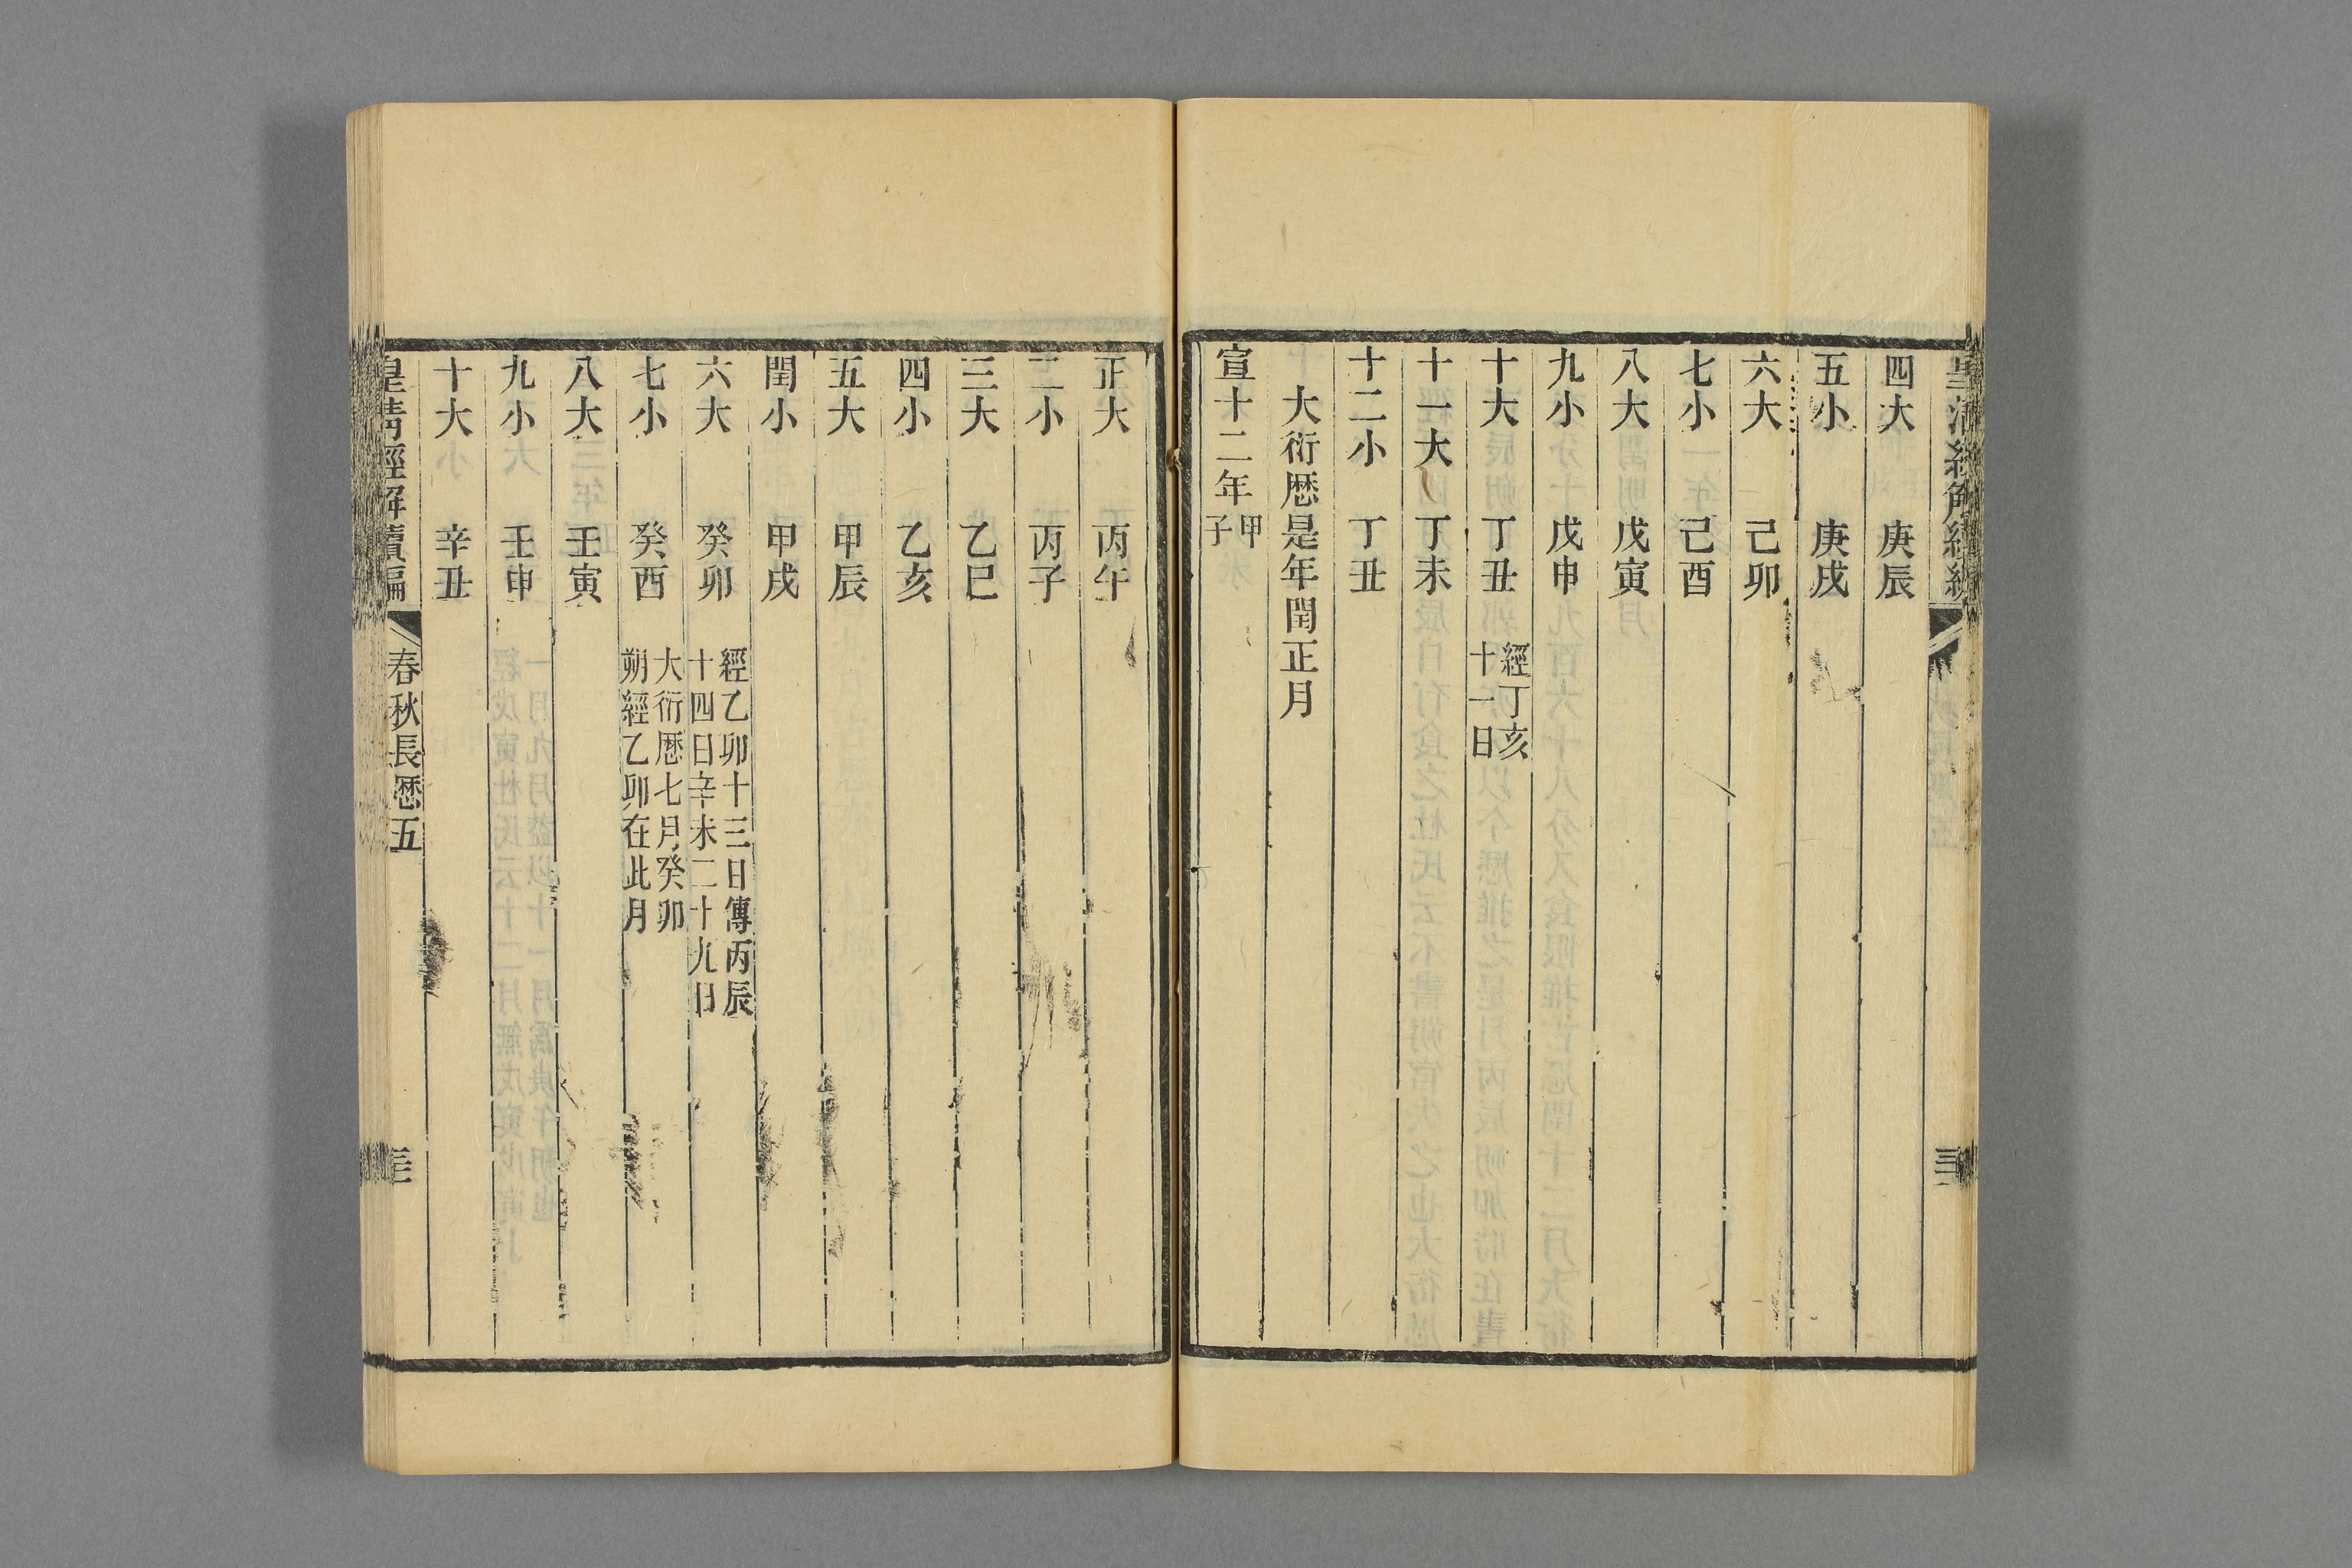 皇清經解續編
三
四大 庚辰
五小 庚戌
六大 己卯
七小 己酉
八大 戊寅
九小 戊申
十大 丁丑 經丁亥
十一日
十一大 丁未
十二小 丁丑
大衍厯是年閏正月
宣十二年 甲
子
正大 丙午
二小 丙子
三大 乙巳
四小 乙亥
五大 甲辰
閏小 甲戌
六大 癸卯 經乙卯十三日傳丙辰
十四日辛未二十九日
七小 癸酉 大衍厯七月癸卯
朔經乙卯在此月
八大 壬寅
九小 壬申
十大 辛丑
皇清經解續編 春秋長厯五